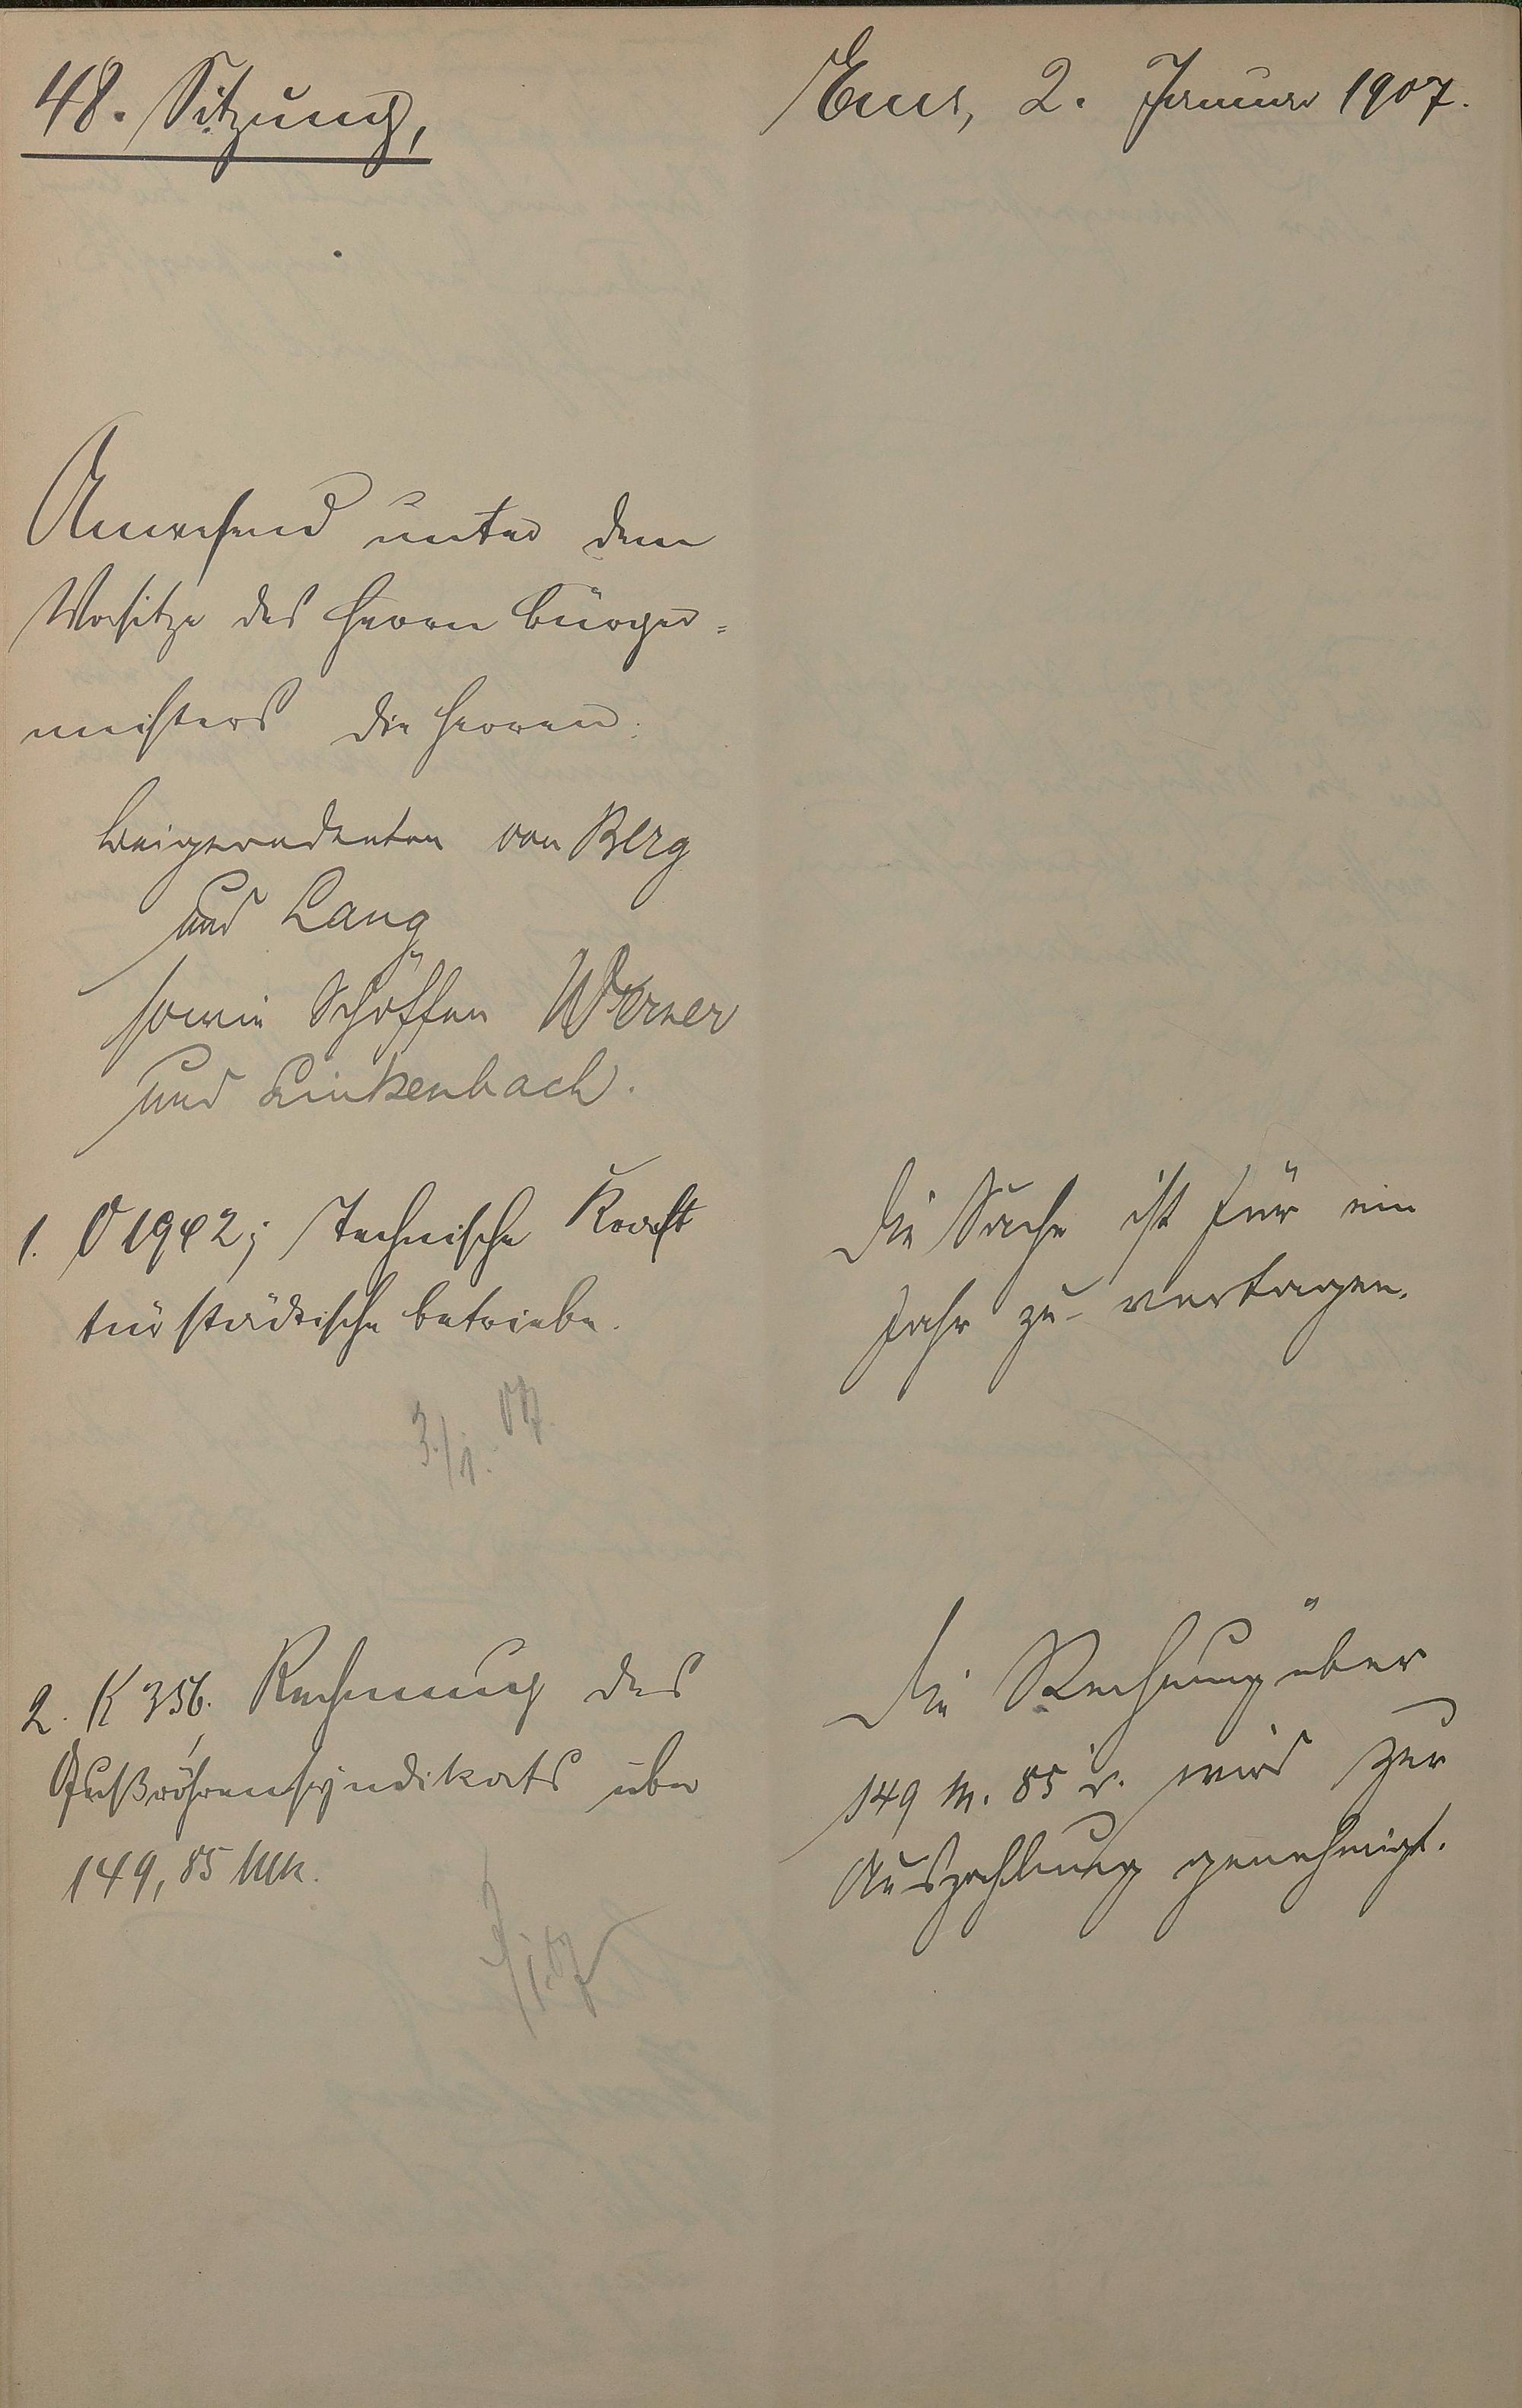 48. Sitzung,
Ems, 2. Januar 1907.
Anwesend unter dem
Vorsitze des Herrn Bürger=
meisters die Herren:
Beigeordneten von Berg
und Lang
sowie Schöffen Werner
und Linkenbach.
1. O 1942; Technische Kraft
für städtische Betriebe.
3./1. 07.
Die Sache ist für ein
Jahr zu vertagen.
2. K 356. Rechnung des
Gußröhrensyndikats über
149,85 Mk.
3/1.07
Die Rechnung über
149 M. 85 wird zur
Auszahlung genehmigt.